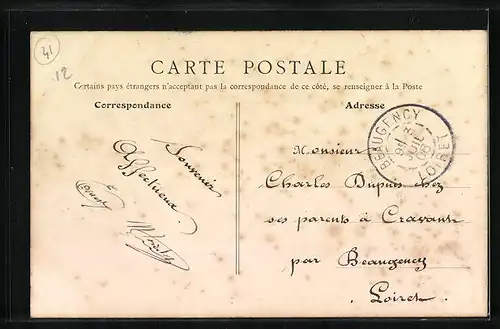 41
12
CARTE POSTALE
Certains pays étrangers n'acceptant pas la correspondance de ce côté, se renseigner à la Poste
Correspondance
Adresse
Souvenir
Affectueux
BEAUGENCY
LOIRET
Monsieur
Charles Dupuis chez
ses parents à Cravant
par Beaugency
Loiret